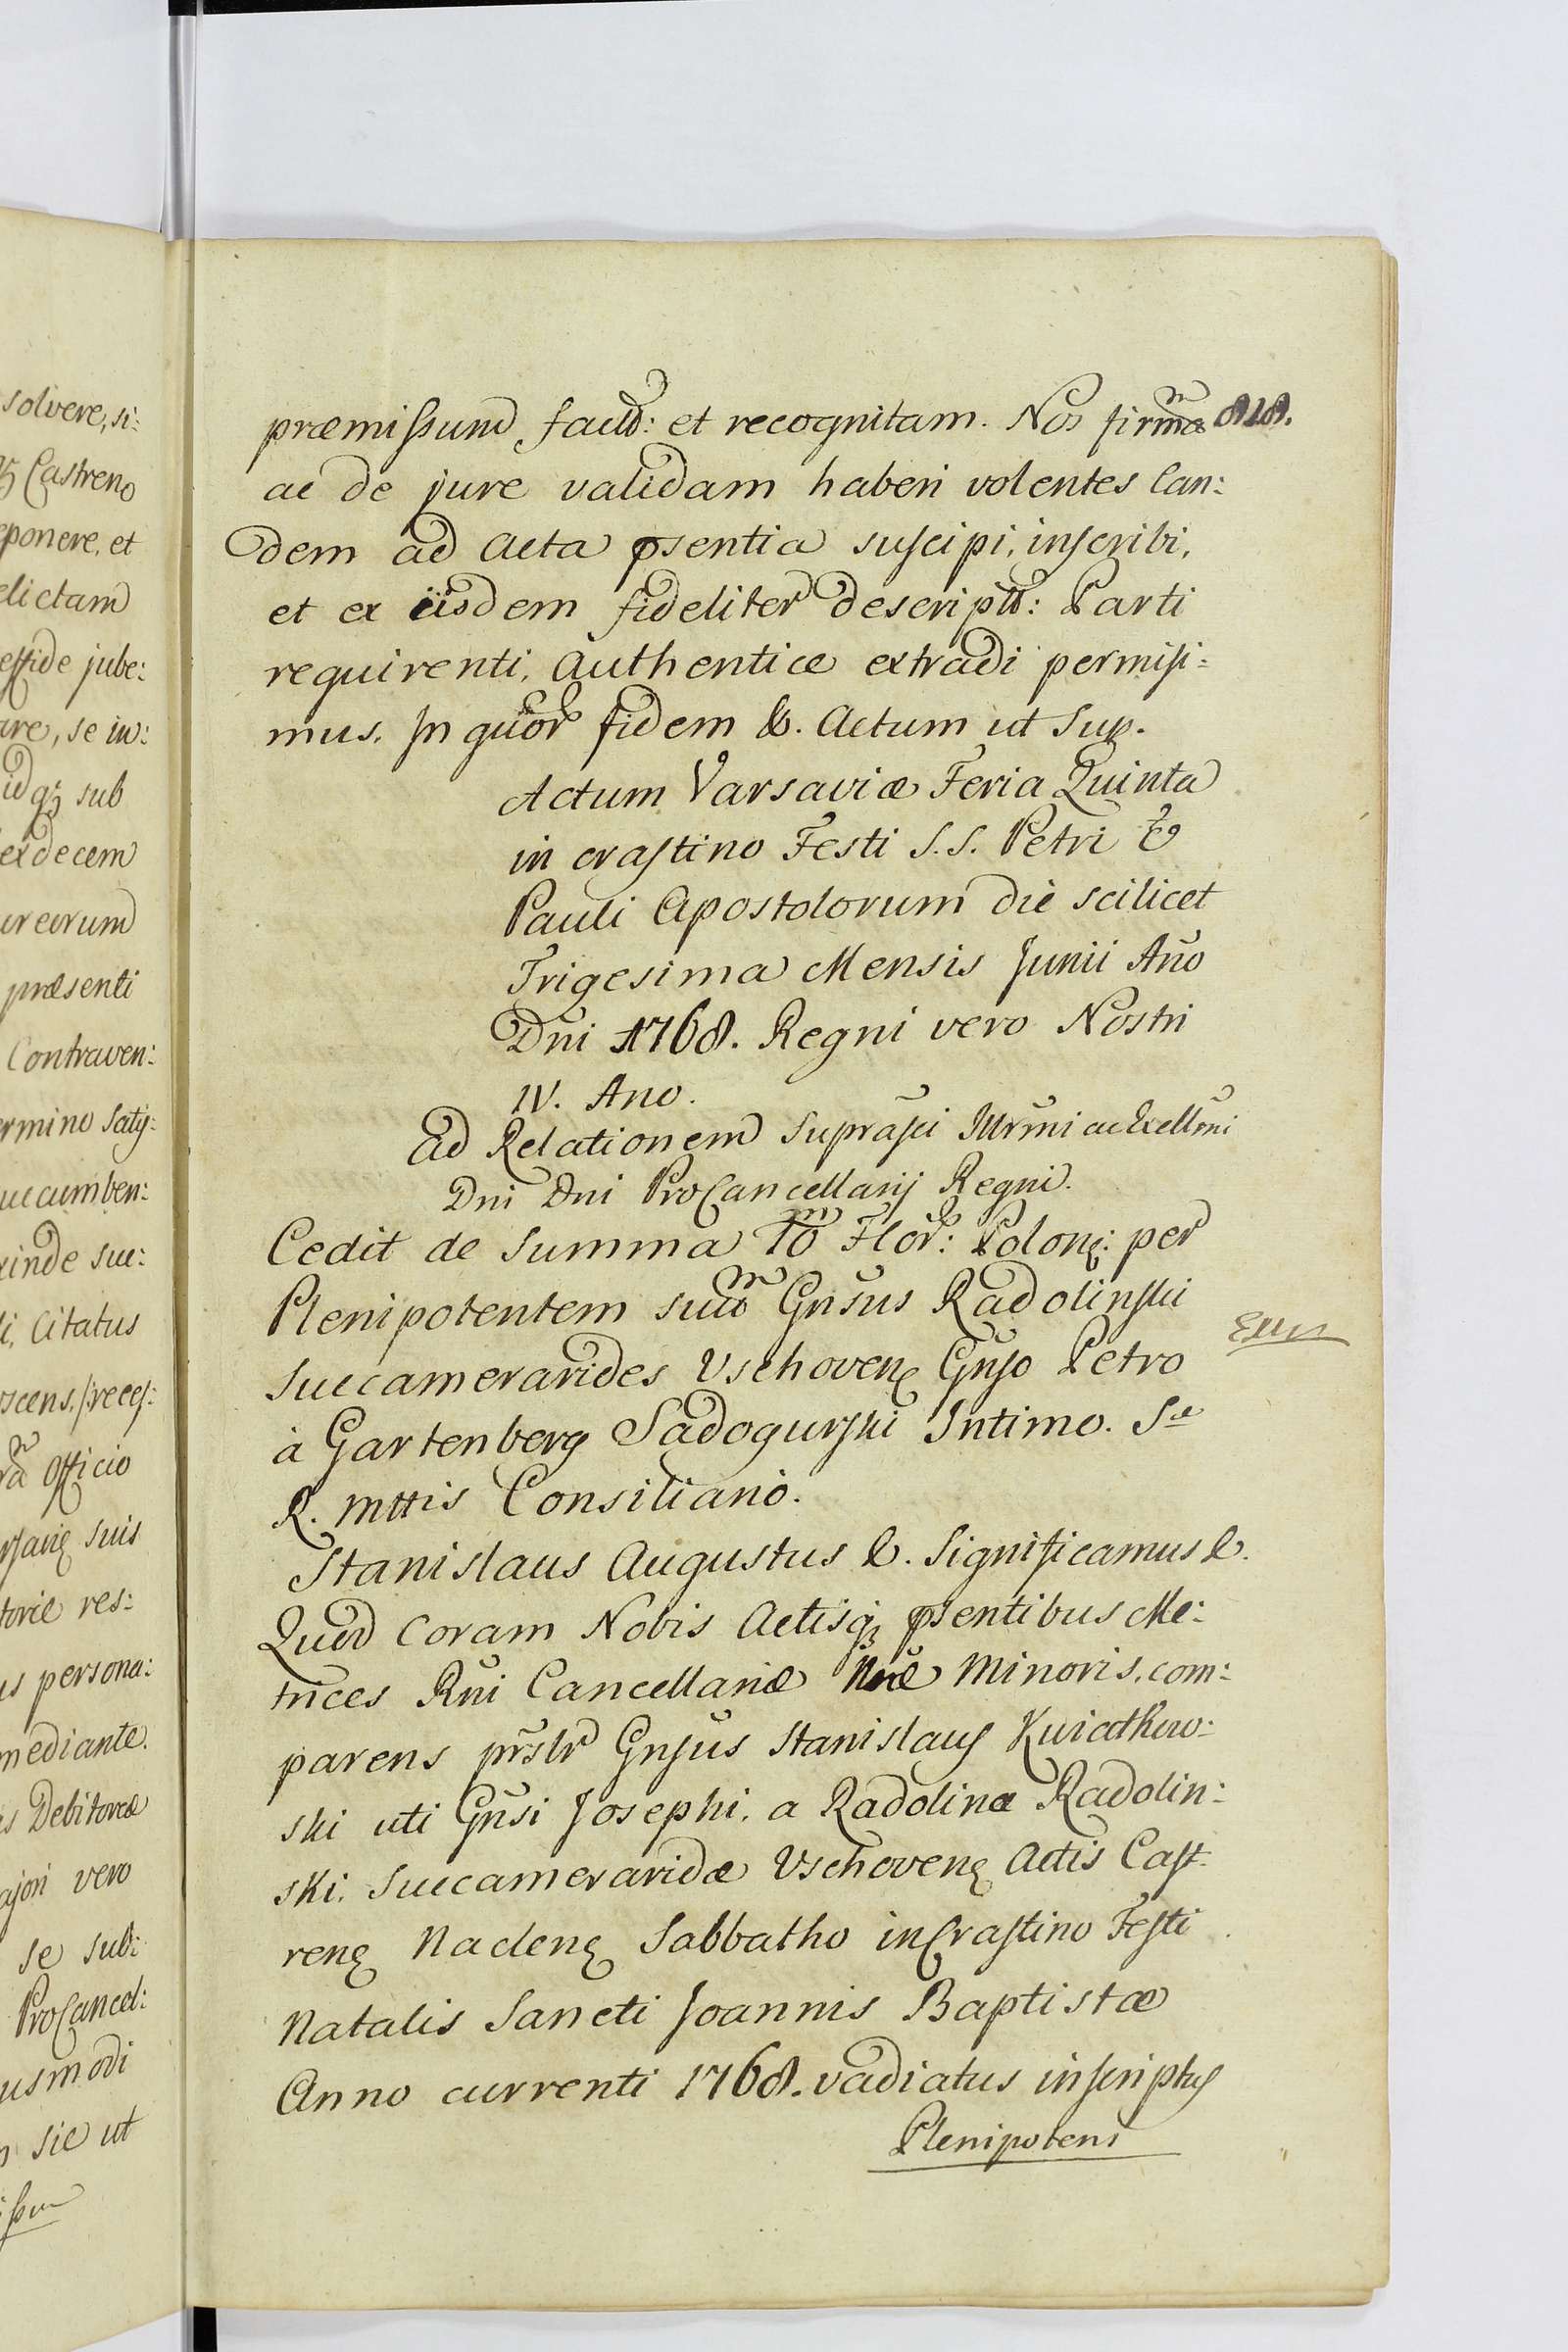 solvere, si:
Castreno
eponere, et
elictam
esside jube:
are, se in:
idq3 sub
exdecem
ureorum
præsenti
Contraven:
ermino satis:
uccumben:
xinde suc:
li, Citatus
scens, reces:
ra Officio
suis
torie res:
us persona:
mediante.
is Debitoreæ
ajori vero
se sub:
ProCancel:
usmodi
sic ut
818.
præmissum factã: et recognitam. Nos firmã
ac de jure validam haberi volentes Ean:
dem ad Acta psentia suscipi, inscribi,
et ex iisdem fideliter descriptã: Parti
requirenti, authentice extradi permisi:
mus. In quor fidem &. Actum ut Sup.
Actum Varsaviæ Feria Quinta
in crastino Festi S.S. Petri &
Pauli Apostolorum die scilicet
Trigesima Mensis Junii Año
Dñi 1768. Regni vero Nostri
IV. Ano.
Ad Relationem Suprasci Illrmi ac Excellmi
Dni Dni ProCancellarij Regni.
Cedit de Summa 10 m Flor: Polonę: per
Plenipotentem suũ Gnsus Radolinski
Succamerarides Vschovenę Gnso Petro
à Gartenberg Sadogurski Intimo. Sæ
R. Mttis Consiliario.
Exm
Stanislaus Augustus &. Significamus &.
Quod Coram Nobis Actisq3 psentibus Me:
trices Rñi Cancellariæ Nræ Minoris, com:
parens prslr Gnsus Stanislaus Kwiatkow:
ski uti Gnsi Josephi, a Radolina Radolin:
ski, Succameraridæ Vschovenę Actis Cast:
renę Naclenę Sabbatho in Crastino Festi
Natalis Sancti Joannis Baptistæ
Anno currenti 1768. vadiatus inscriptus
Plenipotens